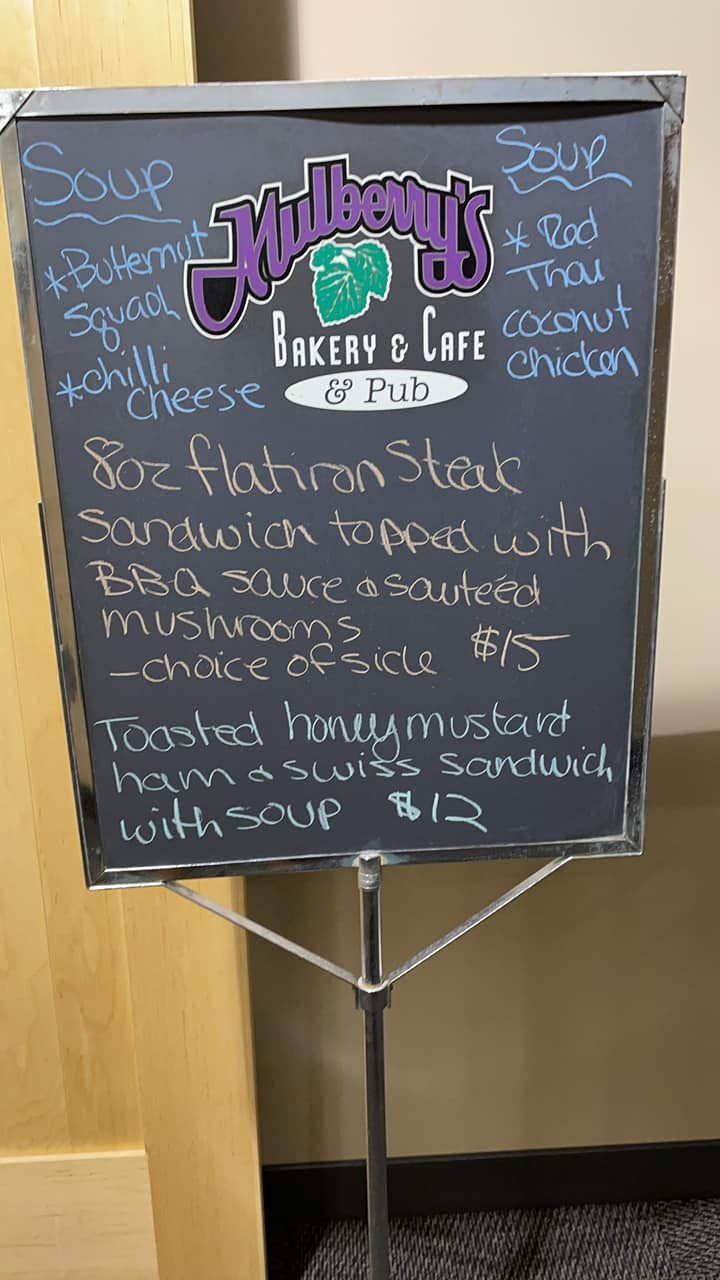 Soup
*Butternut
Squash
*chilli
cheese
Mulberry's
BAKERY & CAFE
& Pub
Soup
* Red
Thai
coconut
chicken
8oz flatiron Steak
Sandwich topped with
BBQ sauce & sauteed
mushrooms
-choice of side $15
Toasted honeymustard
ham & swiss sandwich
with soup $12